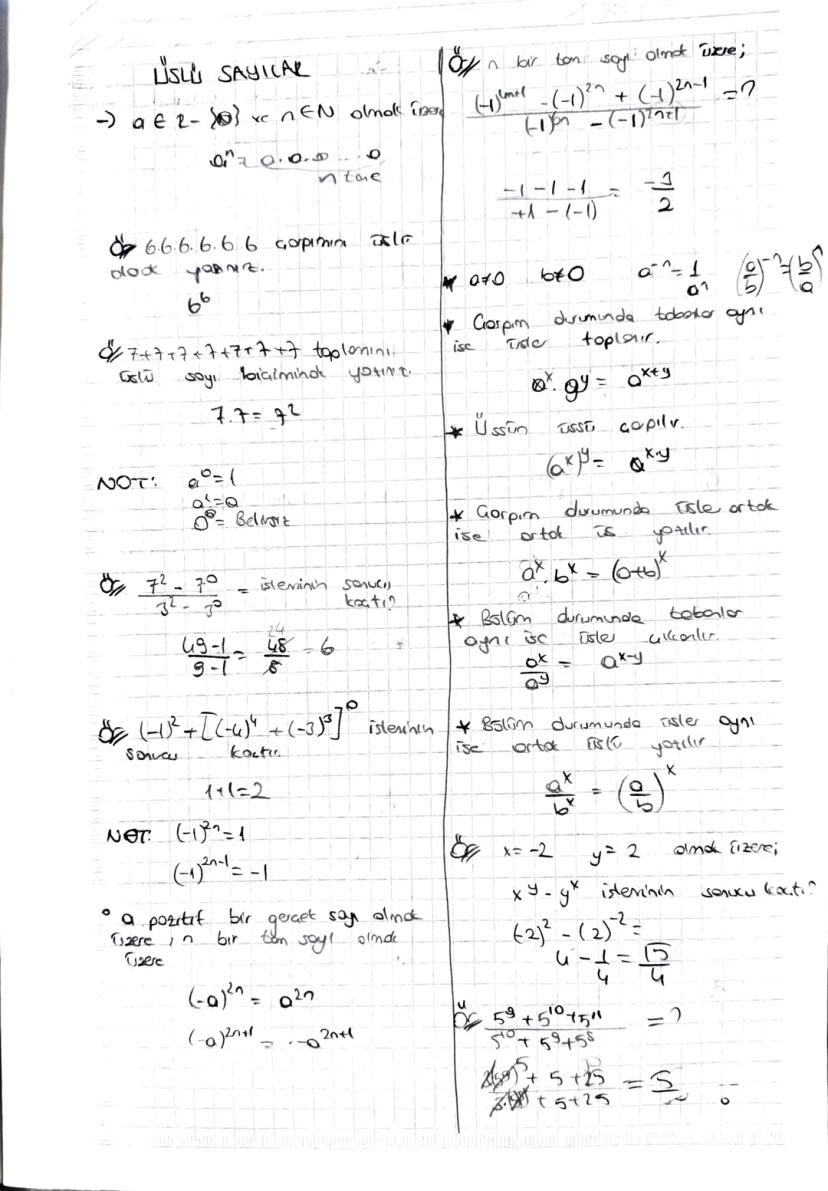 ÜSLÜ SAYILAR
→ a ∈ Z - {0} ve n ∈ N olmak üzere
aⁿ = a.a.a ... a
n tane
Ör 6.6.6.6.6.6 çarpımını üslü
olarak yazınız.
6⁶
Ör 7+7+7+7+7+7+7 toplamını
üslü sayı biçiminde yazınız.
7.7 = 7²
NOT: a⁰ = 1
a¹ = a
0⁰ = Belirsiz
Ör (7² - 7⁰)/(3² - 3⁰) = işleminin sonucu
kaçtır?
(49-1)/(9-1) = 48/8 = 6
Ör (-1)² + [(-4)⁴ + (-3)³]⁰ işleminin
sonucu kaçtır.
1+1=2
NOT: (-1)²ⁿ = 1
(-1)²ⁿ⁻¹ = -1
° a pozitif bir gerçek sayı olmak
üzere, n bir tam sayı olmak
üzere
(-a)²ⁿ = a²ⁿ
(-a)²ⁿ⁺¹ = -a²ⁿ⁺¹
Ör n bir tam sayı olmak üzere;
- (-1)²ⁿ + (-1)²ⁿ⁻¹ = ?
- (-1)²ⁿ⁺¹
(-1-1-1)/(+1-(-1)) = -3/2
* a≠0 b≠0 a⁻ⁿ = 1/aⁿ (a/b)⁻ⁿ = (b/a)ⁿ
* Çarpım durumunda tabanlar aynı
ise üsler toplanır.
aˣ . aʸ = aˣ⁺ʸ
* Üssün üssü çarpılır.
(aˣ)ʸ = aˣ·ʸ
* Çarpım durumunda üsler ortak
ise ortak üs yazılır
aˣ . bˣ = (a+b)ˣ
* Bölüm durumunda tabanlar
aynı ise üsler çıkarılır.
aˣ/aʸ = aˣ⁻ʸ
* Bölüm durumunda üsler aynı
ise ortak üslü yazılır
aˣ/bˣ = (a/b)ˣ
Ör x = -2 y = 2 olmak üzere;
xʸ - yˣ işleminin sonucu kaçtır?
(-2)² - (2)⁻² =
4 - 1/4 = 15/4
Ör (5⁹ + 5¹⁰ + 5¹¹)/(5¹⁰ + 5⁹ + 5⁸) = ?
+ 5 + 25 = 5
+ 5 + 25